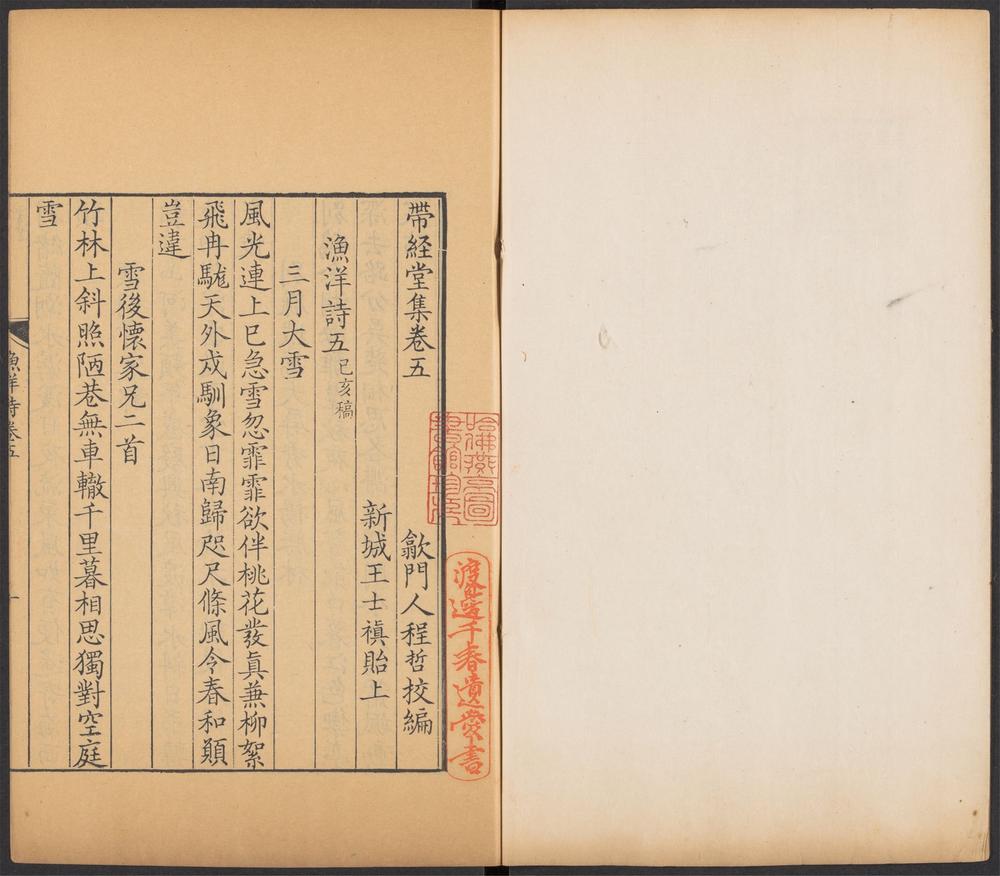 哈佛燕京圖
書館珍藏
渡邊千春遺愛書
帶經堂集卷五
歙門人程哲校編
新城王士禛貽上
漁洋詩五 己亥稿
三月大雪
風光連上巳急雪忽霏霏欲伴桃花發眞兼柳絮
飛冉駹天外戍馴象日南歸咫尺條風令春和願
豈違
雪後懷家兄二首
竹林上斜照陋巷無車轍千里暮相思獨對空庭
雪
漁洋詩卷五
一